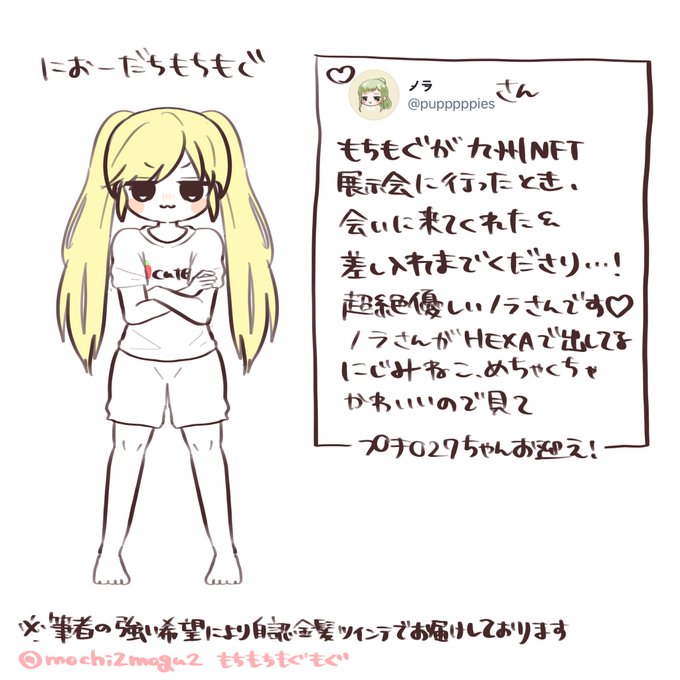 におーだちもちもぐ
ノラ さん
@pupppppies
もちもぐが九州NFT
展示会に行ったとき、
会いに来てくれた&
差し入れまでくださり…!
超絶優しいノラさんです♡
ノラさんがHEXAで出してる
にじみねこ、めちゃくちゃ
かわいいので見て
プチ027ちゃんお迎え!
CUTE
※筆者の強い希望により自認金髪ツインテでお届けしております
@mochi2mogu2 もちもちもぐもぐ